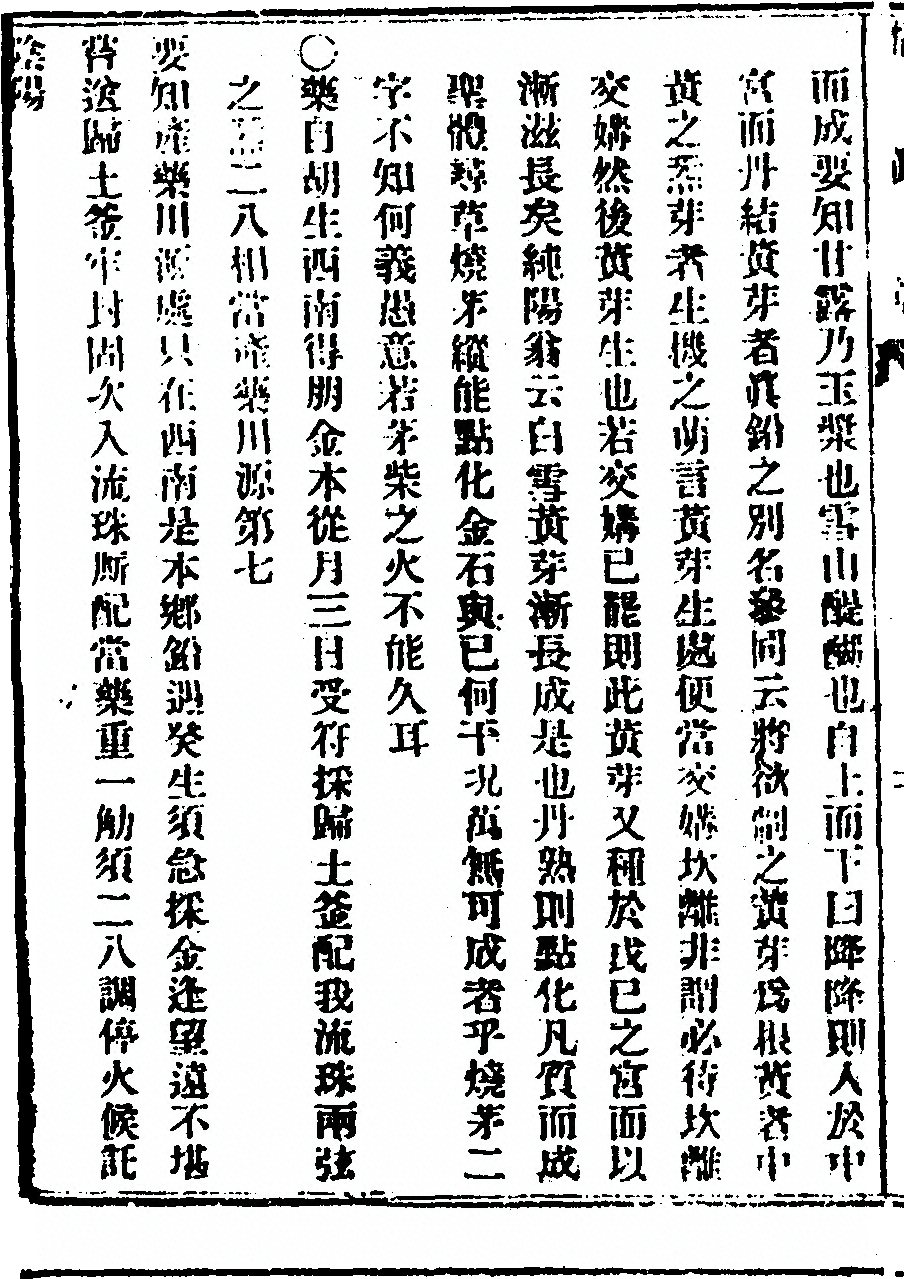 而成要知甘露乃玉漿也雪山醍醐也自上而下曰降降則入於中
宮而丹結黃芽者眞鉛之別名參同云將欲制之黃芽爲根黃者中
黃之炁芽者生機之萌言黃芽生處便當交媾坎離非謂必待坎離
交媾然後黃芽生也若交媾已罷則此黃芽又種於戊已之宮而以
漸滋長矣純陽翁云白雪黃芽漸長成是也丹熟則點化凡質而成
聖體尋草燒茅縱能點化金石與已何干况萬無可成者乎燒茅二
字不知何義愚意若茅柴之火不能久耳
〇藥自胡生西南得朋金本從月三日受符採歸土釜配我流珠兩弦
之炁二八相當產藥川源第七
要知產藥川源處只在西南是本鄉鉛遇癸生須急採金逢望遠不堪
嘗送歸土釜牢封固次入流珠厮配當藥重一觔須二八調停火候託
陰陽